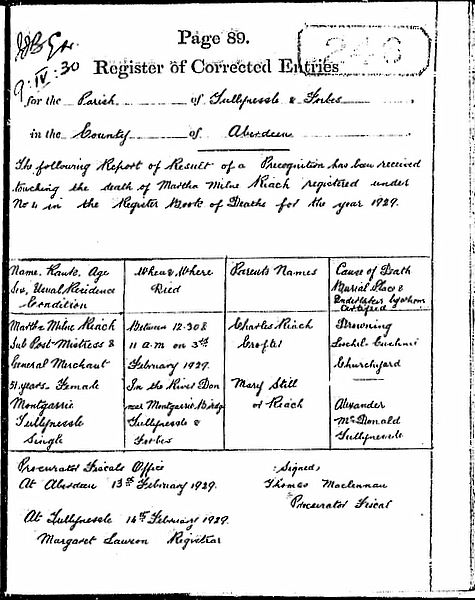 9·IV·30
Page 89.
246
Register of Corrected Entries
for the Parish of Tullynessle & Forbes
in the County of Aberdeen
The following Report of Result of a Precognition has been received
touching the death of Martha Milne Riach registered under
No 4 in the Register Book of Deaths for the year 1929.
Name. Rank. Age
Sex, Usual Residence
Condition
When & Where
Died
Parents Names
Cause of Death
Burial Place &
Undertaker by whom
Certified
Martha Milne Riach
Sub Post-Mistress &
General Merchant
51 years. Female
Montgarrie
Tullynessle
Single
Between 12.30 &
11 A.M on 3rd
February 1929.
In the River Don
near Montgarrie Bridge
Tullynessle &
Forbes
Charles Riach
Crofter
Mary Still
or Riach
Drowning
Churchyard
Alexander
McDonald
Tullynessle
Procurator Fiscals Office
At Aberdeen 13th February 1929.
Signed,
Thomas Maclennan
Procurator Fiscal
At Tullynessle 14th February 1929.
Margaret Lawson Registrar